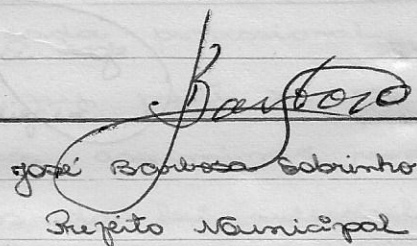 Barboza
José Barbosa Sobrinho
Prefeito Municipal